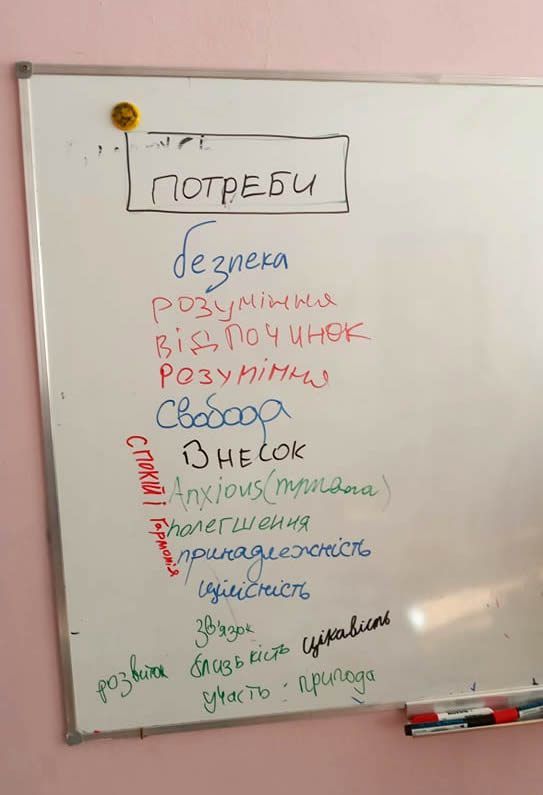 ПОТРЕБИ
безпека
розуміння
відпочинок
розуміння
Свобода
Внесок
Спокій і Гармонія
Anxious (тривога)
полегшення
приналежність
цілісність
Зв'язок
цікавість
близькість
розвиток
участь : природа